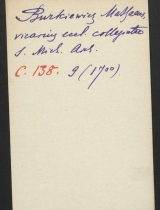 Burkiewicz Mathaeus,
vicarius eccl. collegiatae
S. Mich. Arch.
C. 138. 9 (1700)